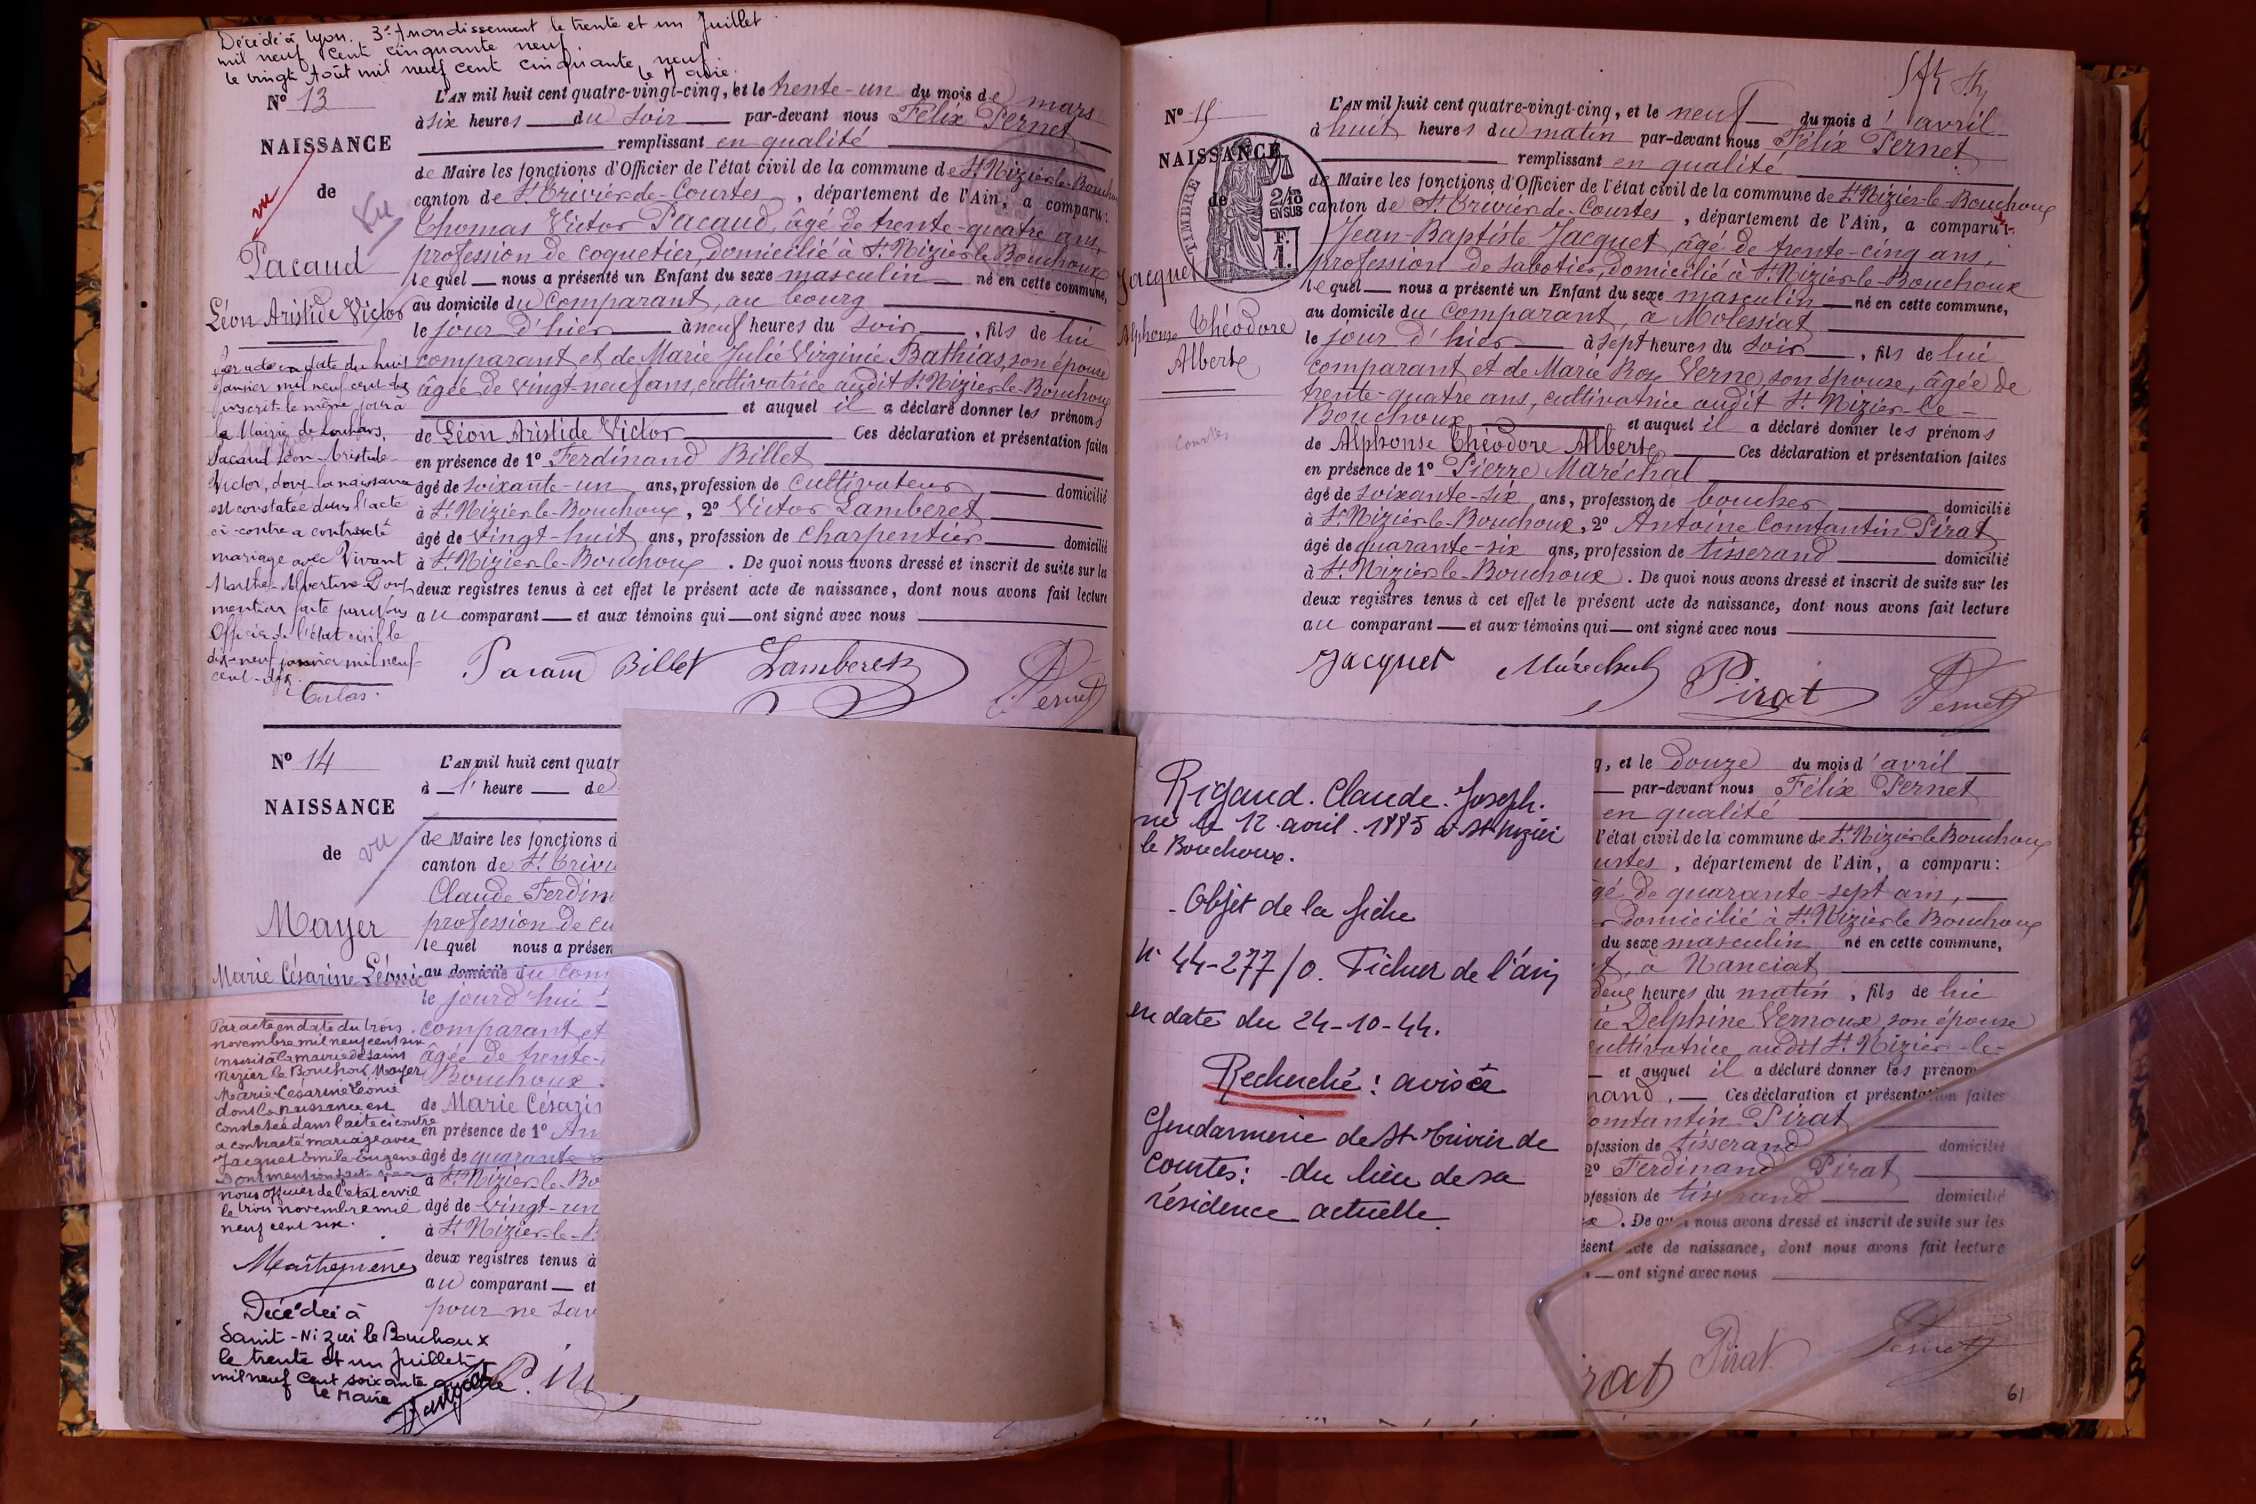 Décédé à Lyon. 3e Arrondissement le trente et un Juillet
mil neuf cent cinquante neuf.
le vingt Août mil neuf cent cinquante neuf.
le Maire.
No 13
NAISSANCE
de
vu
Vu
Pacaud
Léon Aristide Victor
Par acte en date du huit
janvier mil neuf cent dix
inscrit le même jour à
la Mairie de Louhans,
Pacaud Léon-Aristide-
Victor, dont la naissance
est constatée dans l'acte
ci-contre a contracté
mariage avec Vivant
Marthe-Albertine
mention faite par nous
Officier de l'état civil le
dix-neuf janvier mil neuf
cent-dix.
L'AN mil huit cent quatre-vingt-cinq, et le trente-un du mois de mars
à six heures du soir par-devant nous Félix Pernet
remplissant en qualité
de Maire les fonctions d'Officier de l'état civil de la commune de St Nizier-le-Bouchoux
canton de St Trivier-de-Courtes, département de l'Ain, a comparu:
Thomas Victor Pacaud, âgé de trente-quatre ans,
profession de coquetier, domicilié à St Nizier-le-Bouchoux
lequel nous a présenté un Enfant du sexe masculin né en cette commune,
au domicile du comparant, au bourg
le jour d'hier à neuf heures du soir, fils de lui
comparant et de Marie Julie Virginie Bathias, son épouse
âgée de vingt-neuf ans, cultivatrice audit St Nizier-le-Bouchoux
et auquel il a déclaré donner les prénoms
de Léon Aristide Victor Ces déclaration et présentation faites
en présence de 1o Ferdinand Billet
âgé de soixante-un ans, profession de cultivateur domicilié
à St Nizier-le-Bouchoux, 2o Victor Lamberet
âgé de vingt-huit ans, profession de charpentier domicilié
à St Nizier-le-Bouchoux. De quoi nous avons dressé et inscrit de suite sur les
deux registres tenus à cet effet le présent acte de naissance, dont nous avons fait lecture
au comparant et aux témoins qui ont signé avec nous
Pacaud Billet Lamberet Pernet
No 14
NAISSANCE
de
vu
Mayer
Marie Césarine Léonie
Par acte en date du trois
novembre mil neuf cent six
inscrit à la mairie de Saint
Nizier le Bouchoux Mayer
Marie Césarine Léonie
dont la naissance est
constatée dans l'acte ci contre
a contracté mariage avec
Jacquet Emile Eugène
Dont mention faite par
nous officier de l'état civil
le trois novembre mil
neuf cent six.
Décédée à
Saint-Nizier le Bouchoux
le trente et un Juillet
mil neuf cent soixante quatre
le Maire
L'AN mil huit cent quatr
à l' heure de
de Maire les fonctions d
canton de St Trivi
Claude Ferdin
profession de cu
lequel nous a présen
au domicile du com
le jourd'hui
comparant et
âgée de trente-
Bouchoux
de Marie Césarin
en présence de 1o An
âgé de quarante
à St Nizier-le-Bo
âgé de vingt-un
à St Nizier-le-B
deux registres tenus à
au comparant et
pour ne sav
No 15
NAISSANCE
de
TIMBRE
2/10
EN SUS
F.
1.
Jacquet
Alphonse Théodore
Albert
Courtes
L'AN mil huit cent quatre-vingt-cinq, et le neuf du mois d'avril
à huit heures du matin par-devant nous Félix Pernet
remplissant en qualité
de Maire les fonctions d'Officier de l'état civil de la commune de St Nizier-le-Bouchoux
canton de St Trivier-de-Courtes, département de l'Ain, a comparu:
Jean-Baptiste Jacquet, âgé de trente-cinq ans,
profession de sabotier, domicilié à St Nizier-le-Bouchoux
lequel nous a présenté un Enfant du sexe masculin né en cette commune,
au domicile du comparant, à Molessiat
le jour d'hier à sept heures du soir, fils de lui
comparant et de Marie Rose Verne, son épouse, âgée de
trente-quatre ans, cultivatrice audit St Nizier-le-
Bouchoux et auquel il a déclaré donner les prénoms
de Alphonse Théodore Albert Ces déclaration et présentation faites
en présence de 1o Pierre Maréchal
âgé de soixante-six ans, profession de boucher domicilié
à St Nizier-le-Bouchoux, 2o Antoine Constantin Pirat
âgé de quarante-six ans, profession de tisserand domicilié
à St Nizier-le-Bouchoux. De quoi nous avons dressé et inscrit de suite sur les
deux registres tenus à cet effet le présent acte de naissance, dont nous avons fait lecture
au comparant et aux témoins qui ont signé avec nous
Jacquet Maréchal Pirat Pernet
Rigaud. Claude. Joseph.
né le 12 avril. 1885 à St Nizier
le Bouchoux.
- Objet de la fiche
No 44-277/0. Fichier de l'Ain
en date du 24-10-44.
Recherché : avis à
Gendarmerie de St Trivier de
Courtes: du lieu de sa
résidence actuelle.
q, et le douze du mois d'avril
par-devant nous Félix Pernet
en qualité
l'état civil de la commune de St Nizier le Bouchoux
urtes, département de l'Ain, a comparu:
gé de quarante-sept ans,
domicilié à St Nizier le Bouchoux
du sexe masculin né en cette commune,
t, à Nanciat
deux heures du matin, fils de lui
ie Delphine Vernoux, son épouse
cultivatrice audit St Nizier-le-
et auquel il a déclaré donner les prénom
nand. Ces déclaration et présentation faites
onstantin Pirat
ofession de tisserand domicilié
2o Ferdinand Pirat
ofession de tisserand domicilié
x. De quoi nous avons dressé et inscrit de suite sur les
ésent acte de naissance, dont nous avons fait lecture
ont signé avec nous
rat Pirat Pernet
61